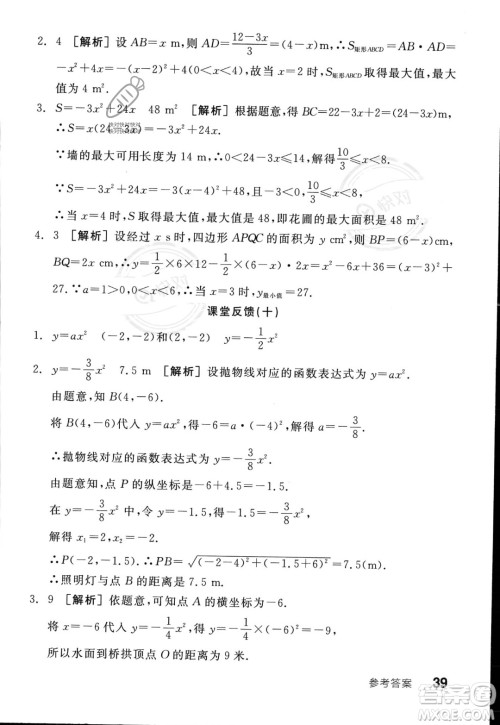 2. 4 [解析] 设 AB=x m, 则 AD=\frac{12-3x}{3}=(4-x)m, ∴S矩形ABCD=AD=
-x²+4x=-(x-2)²+4,∴当 x=2 时, S矩形ABCD取得最大值,故最大
值为 4 m².
3. S=-3x²+24x 48 m² [解析] 根据题意,得 BC=22-3x+2=(24-3x)m,
∴S=x(24-3x)=-3x²+24x.
∵墙的最可用长度为14 m, ∴\frac{10}{3}≤x<8.
∵S=-3x²+24x=-3(x-4)²+48,\frac{10}{3}≤x<8,
∴当 x=4 时,S取得最大值,最大值是 48,即花圃的最大面积是 48 m².
4. 3 [解析] 设经过 x s,四边形 APQC 的面积为 y cm²,则 BP=(6-x)cm,
BQ=2x cm,∴y=\frac{1}{2}×6×12-\frac{1}{2}(6-x)·2x=x²-6x+36=(x-3)²+
27.∵a=1>0,∴当 x=3 时,y最小值=27.
课堂反馈(十)
1. y=ax² (-2,-2)和(2,-2) y=-\frac{1}{2}x²
2. y=-\frac{3}{8}x² 7.5 m [解析] 设抛物线对应的函数表达式为 y=ax².
由题意,知 B(4,-6).
将 B(4,-6)代入 y=ax²,得-6=a·4²,解得 a=-\frac{3}{8}.
∴抛物线对应的函数表达式为 y=-\frac{3}{8}x².
由题意知,点 P 的纵坐标为-6+4.5=-1.5.
在 y=-\frac{3}{8}x² 中,令 y=-1.5,得-1.5=-\frac{3}{8}x²,
解得 x₁=2,x₂=-2.
∴P(-2,-1.5).∴PB=\sqrt{(-2-4)²+(-1.5+6)²}=7.5.
∴照明灯与点 B 的距离是 7.5 m.
3. 9 [解析] 依题意,可知点 A 的横坐标为-6.
将 x=-6 代入 y=-\frac{1}{4}x²,得 y=-\frac{1}{4}×(-6)²=-9,
所以水面与桥拱顶点 O 的距离为 9 米.
参考答案 39